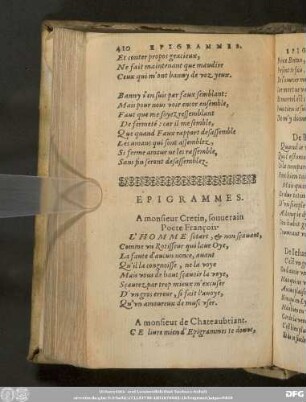 410 EPIGRAMMES.
Et conter propos gracieux,
Ne fait maintenant que maudire
Ceux qui m'ont banny de voz yeux.
Banny i'en suis par faux semblant:
Mais pour nous voir encor ensemble,
Faut que me soyez ressemblant
De fermeté: car il me semble,
Que quand Faux rapport desassemble
Les amans qui sont assemblez,
Si ferme amour ne les r'assemble,
Sans fin seront desassemblez.
EPIGRAMMES.
A monsieur Cretin, souuerain
Poëte François.
L'HOMME sotart, & non sçauant,
Comme vn Rotisseur qui laue Oye,
La faute d'aucun nonce, auant
Qu'il la congnoisse, ne la voye
Mais vous de haut sçauoir la voye,
Sçaurez par trop mieux m'excuser
D'vn gros erreur, si fait l'auoye,
Qu'vn amoureux de musc vser.
A monsieur de Chateaubriant.
CE liure mien d'Epigrammes te donne,
DFG